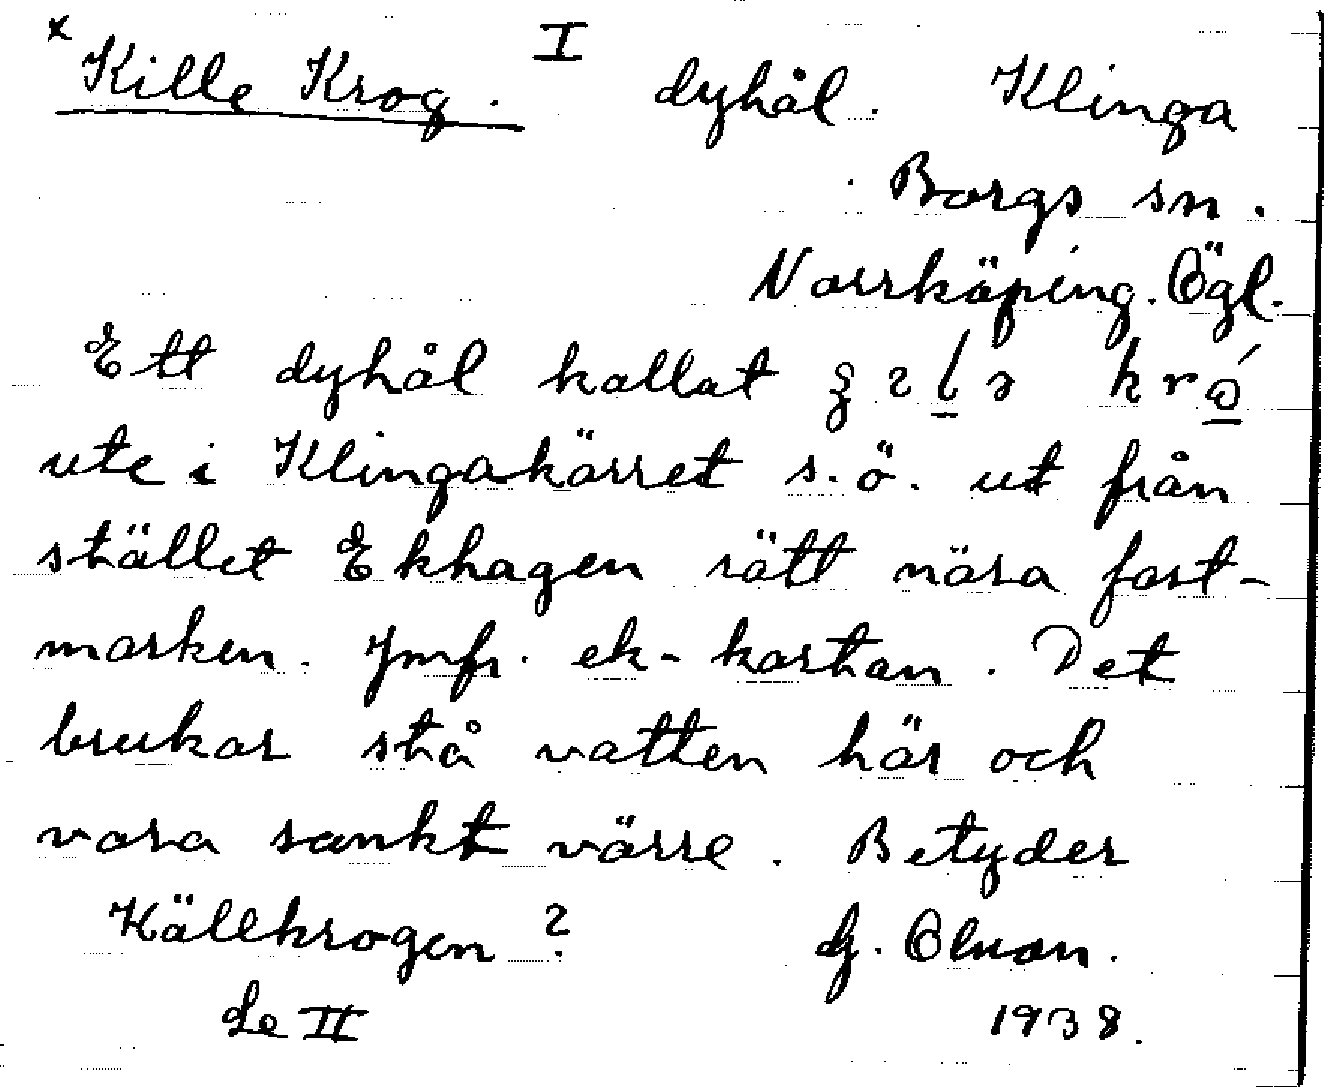 x Kille Krog. I dyhål. Klinga
Borgs sn.
Norrköping. Ögl.
Ett dyhål kallat
ute i Klingakärret s.ö. ut från
stället Ekhagen rätt nära fast-
marken. Jmfr. ek-kartan. Det
brukar stå vatten här och
vara sankt värre. Betyder
Källkrogen? G. Olson.
Se II 1938.